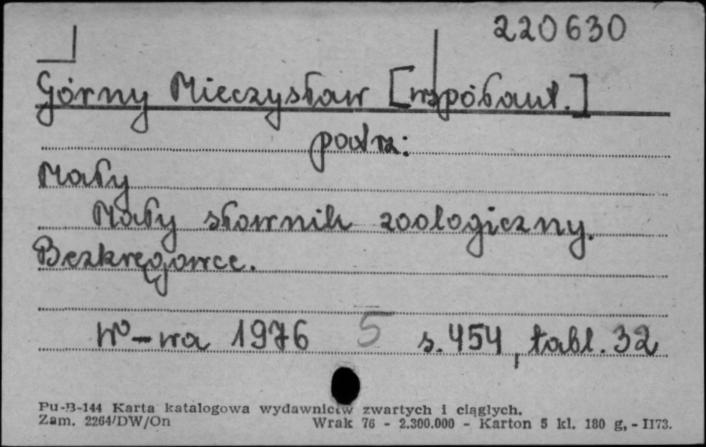 220630
Górny Mieczysław [współaut.]
patrz:
Mały
Mały słownik zoologiczny.
Bezkręgowce.
W-wa 1976 5 s. 454, tabl. 32
Pu-B-144 Karta katalogowa wydawnictw zwartych i ciągłych.
Zam. 2264/DW/On Wrak 76 - 2.300.000 - Karton 5 kl. 180 g. - II73.